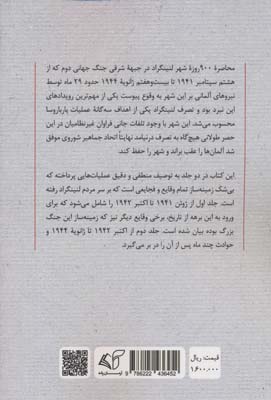 محاصرهٔ ۹۰۰روزهٔ شهر لنینگراد در جبههٔ شرقی جنگ جهانی دوم که از
هشتم سپتامبر ۱۹۴۱ تا بیست‌وهفتم ژانویهٔ ۱۹۴۴ حدود ۲۹ ماه توسط
نیروهای آلمانی بر این شهر به وقوع پیوست یکی از مهم‌ترین رویدادهای
این نبرد بود و تصرف لنینگراد یکی از اهداف سه‌گانهٔ عملیات بارباروسا
محسوب می‌شد. این شهر با وجود تلفات جانی فراوان غیرنظامیان در این
حصر طولانی هیچ‌گاه به تصرف درنیامد. نهایتاً اتحاد جماهیر شوروی موفق
شد آلمان‌ها را عقب براند و شهر را حفظ کند.
این کتاب در دو جلد به توصیف منطقی و دقیق عملیات‌هایی پرداخته که
بی‌شک زمینه‌ساز تمام وقایع و فجایعی است که بر سر مردم لنینگراد رفته
است. جلد اول از ژوئن ۱۹۴۱ تا اکتبر ۱۹۴۲ را شامل می‌شود که برای
ورود به این برهه از تاریخ، برخی وقایع دیگر نیز که زمینه‌ساز این جنگ
بزرگ بوده بیان شده است. جلد دوم از اکتبر ۱۹۴۲ تا ژانویهٔ ۱۹۴۴ و
حوادث چند ماه پس از آن را در بر می‌گیرد.
قیمت: ریال
۱,۶۰۰,۰۰۰
9 786222 436452